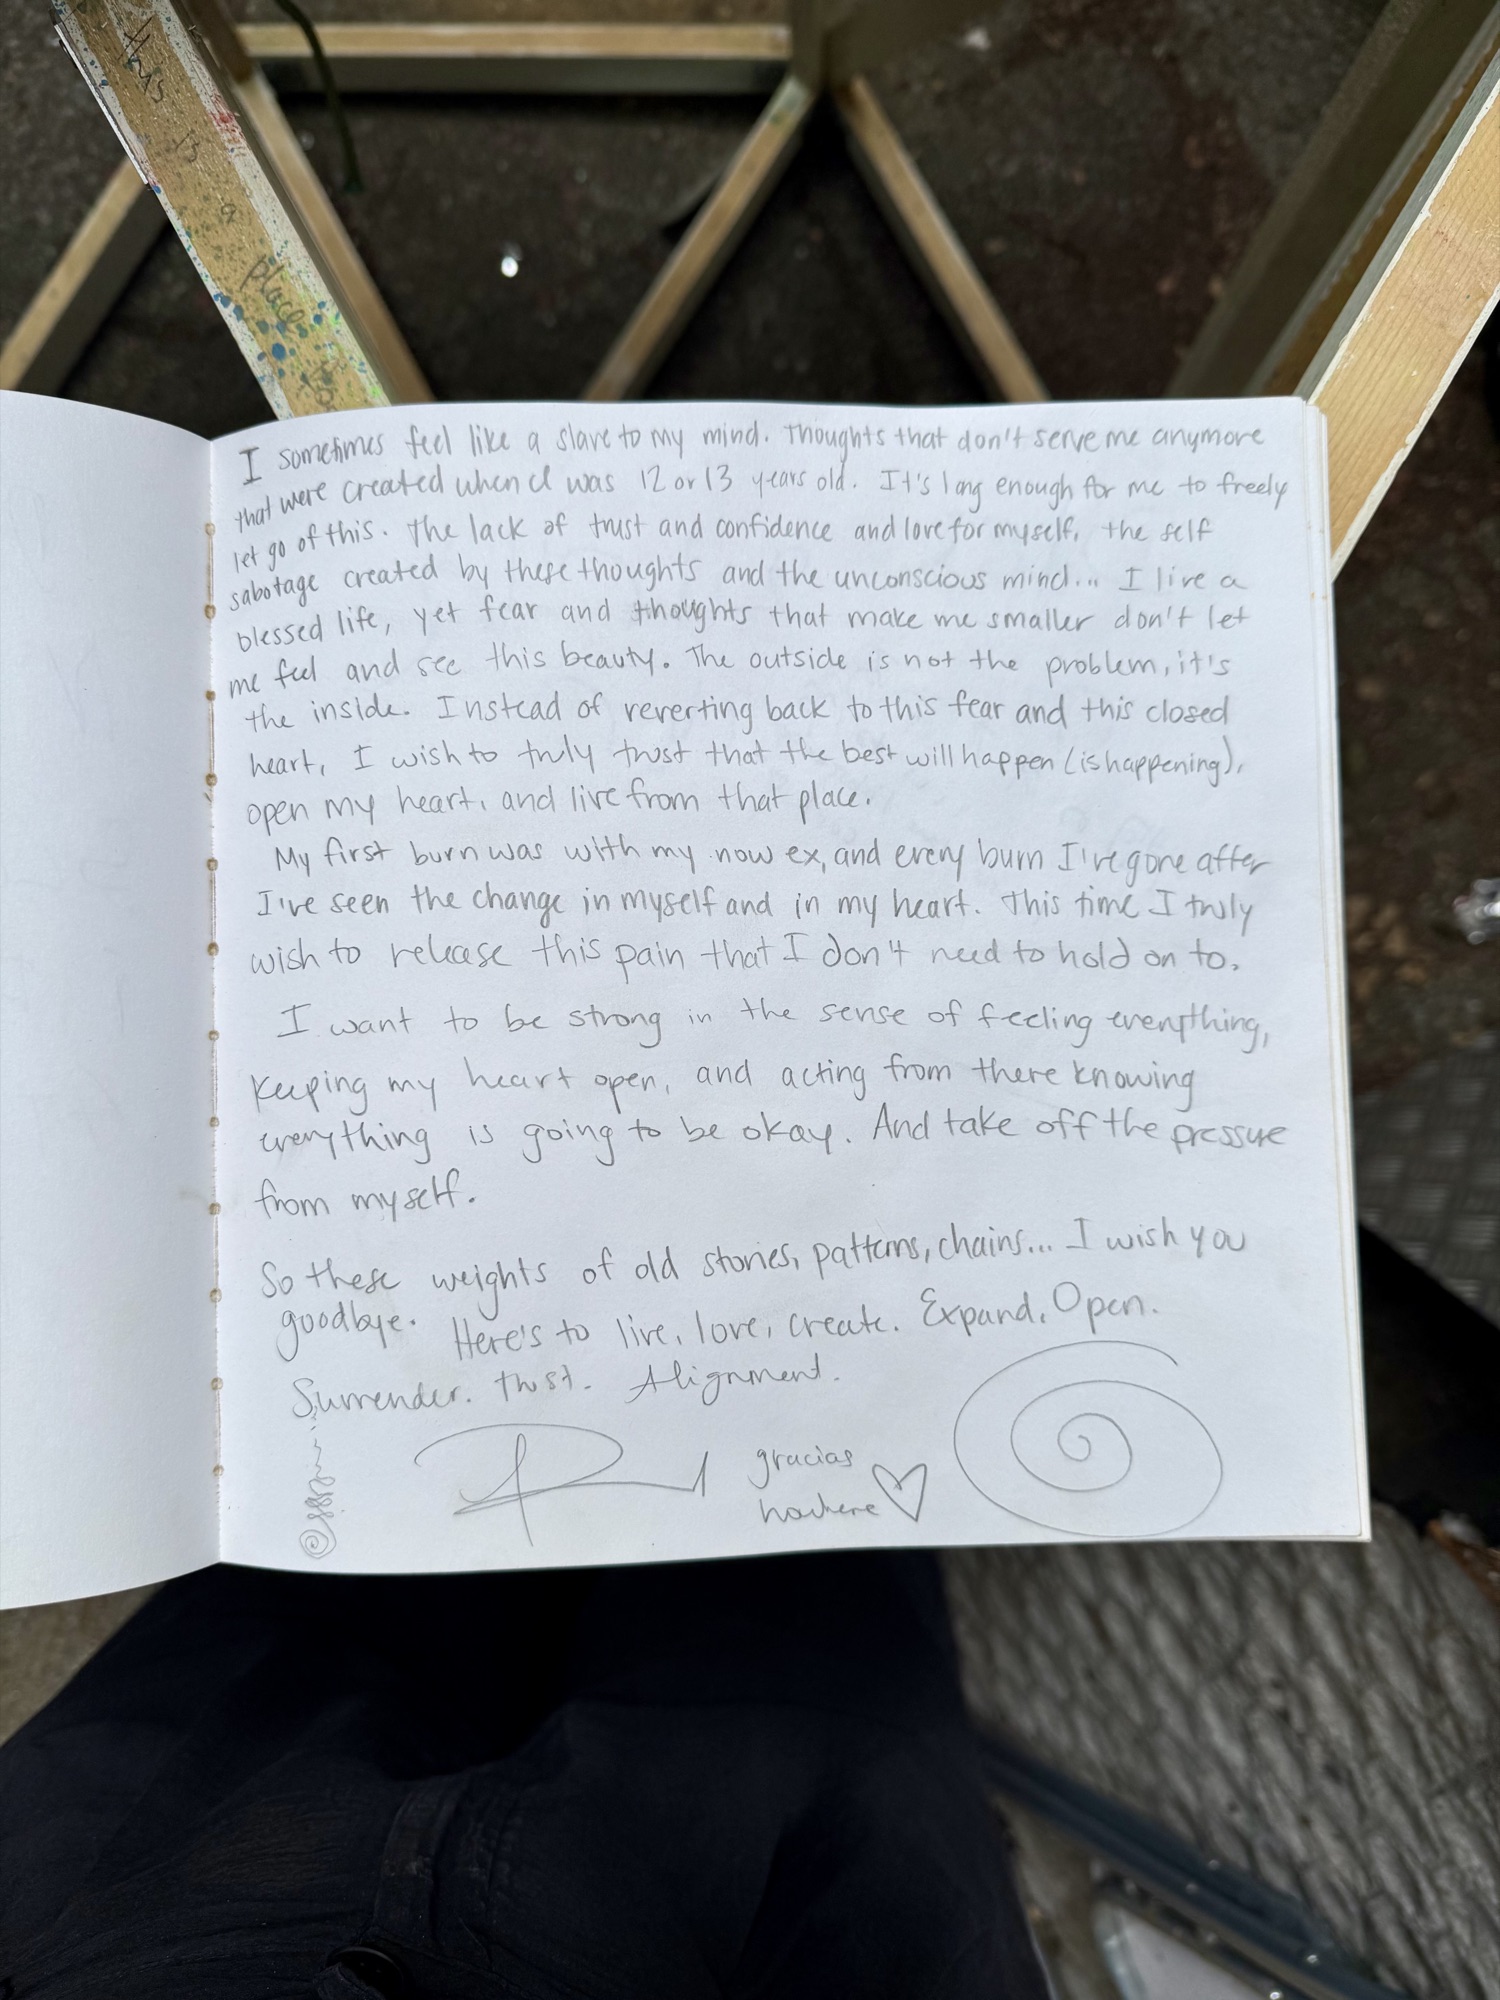 this
is
a
place
I sometimes feel like a slave to my mind. Thoughts that don't serve me anymore
that were created when I was 12 or 13 years old. It's long enough for me to freely
let go of this. The lack of trust and confidence and love for myself, the self
sabotage created by these thoughts and the unconscious mind... I live a
blessed life, yet fear and thoughts that make me smaller don't let
me feel and see this beauty. The outside is not the problem, it's
the inside. Instead of reverting back to this fear and this closed
heart, I wish to truly trust that the best will happen (is happening),
open my heart, and live from that place.
My first burn was with my now ex, and every burn I've gone after
I've seen the change in myself and in my heart. This time I truly
wish to release this pain that I don't need to hold on to.
I want to be strong in the sense of feeling everything,
keeping my heart open, and acting from there knowing
everything is going to be okay. And take off the pressure
from myself.
So these weights of old stories, patterns, chains... I wish you
goodbye. Here's to live, love, create. Expand. Open.
Surrender. Trust. Alignment.
gracias
nowhere